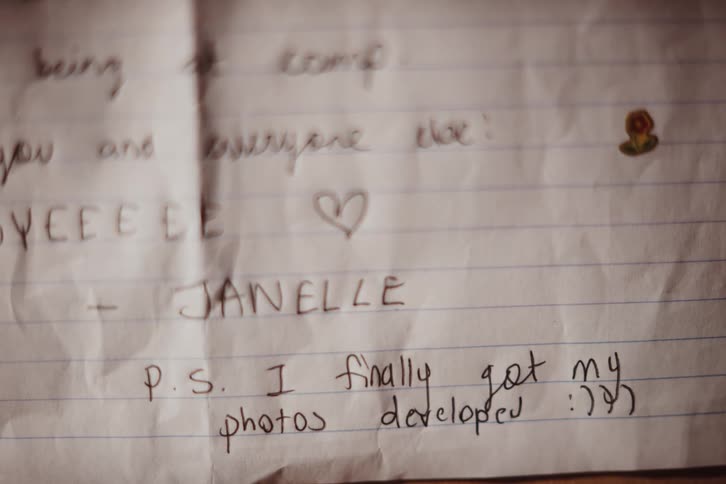 being @ camp.
you and everyone else!
YEEEEE ♡
- JANELLE
P.S. I finally got my
photos developed :)))